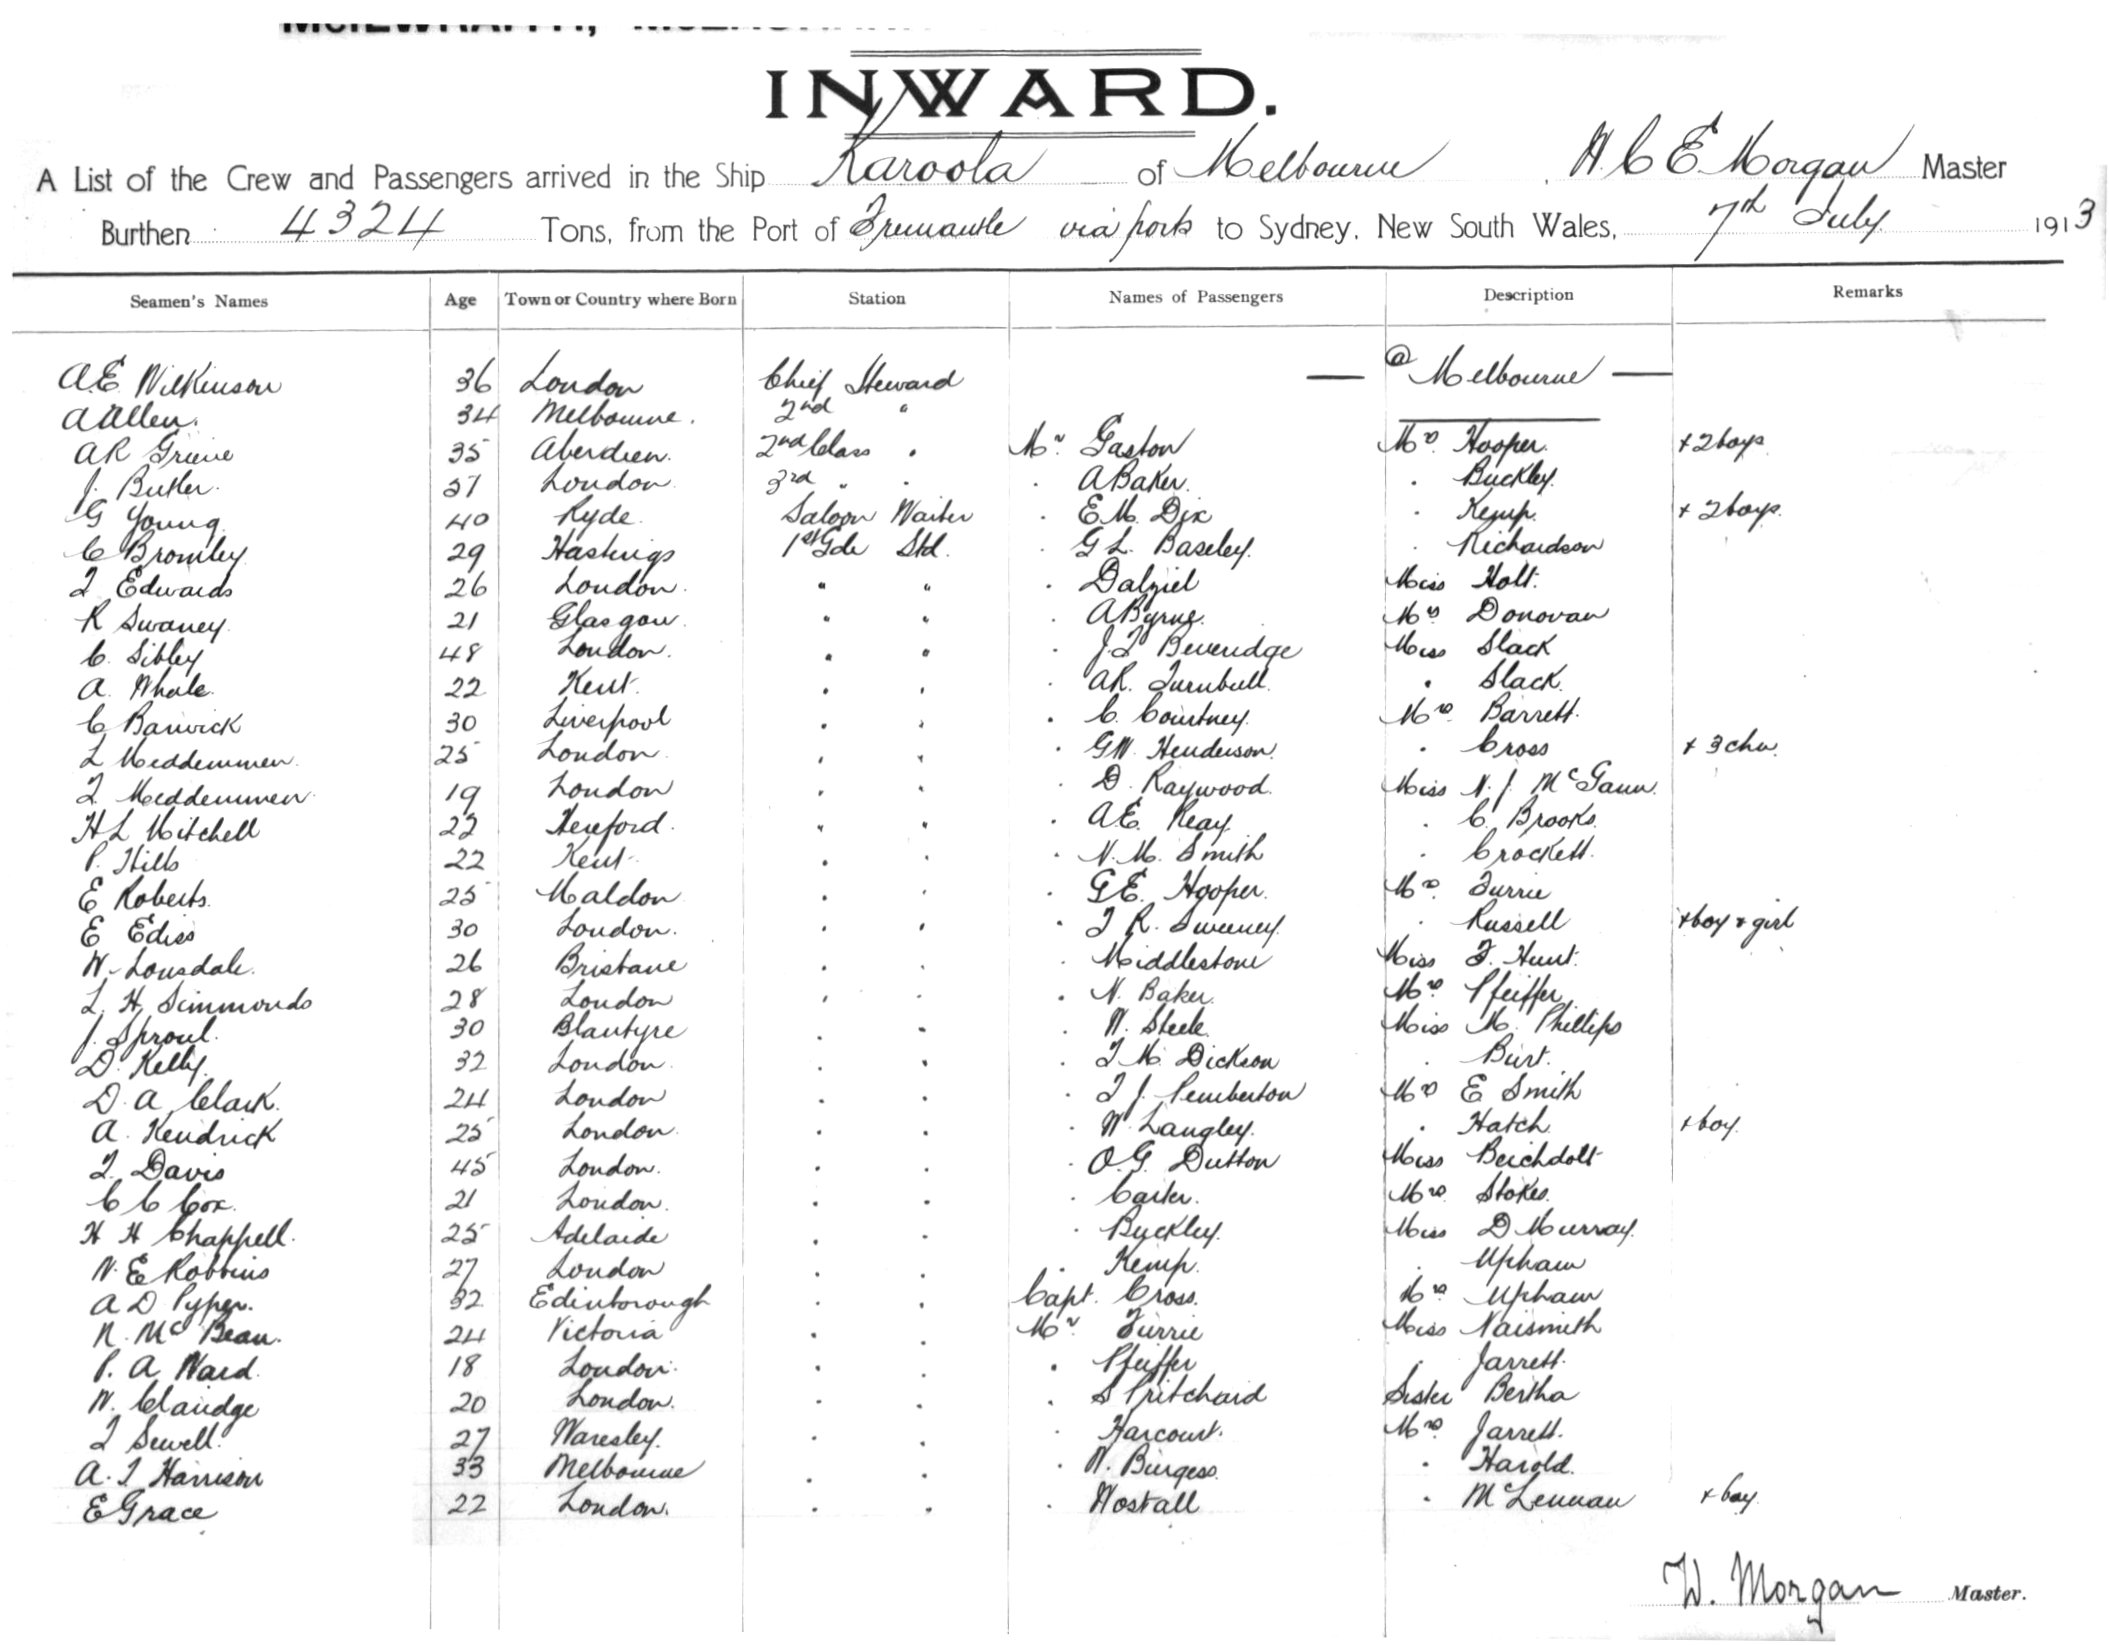 INWARD.
A List of the Crew and Passengers arrived in the Ship Karoola of Melbourne, W. C. E. Morgan Master
Burthen 4324 Tons, from the Port of Fremantle via ports to Sydney, New South Wales, 7th July 1913
Seamen's Names Age Town or Country where Born Station Names of Passengers Description Remarks
A.E. Wilkinson 36 London Chief Steward — @ Melbourne —
A Allen. 34 Melbourne. 2nd "
A R Grieve 35 Aberdeen. 2nd Class " Mr. Gaston Mrs. Hooper. + 2 boys
J. Butler. 37 London 3rd " " " A Baker. " Buckley.
G Young 40 Ryde. Saloon Waiter " E.M. Dix " Kemp. + 2 boys.
C Bromley 29 Hastings 1st Gde Std. " G L. Baseley. " Richardson
T Edwards 26 London. " " " Dalziel Miss Holt.
R Swaney. 21 Glasgow. " " " A Byrne. Mrs Donovan
C. Sibley 48 London. " " " J.T Beveridge Miss Slack
A. Whale. 22 Kent. " " " A R. Turnbull. " Slack.
C Barwick 30 Liverpool " " " C. Courtney. Mrs. Barrett.
L Meddemmen. 25 London. " " " G W. Henderson. " Cross + 3 chn.
T. Meddemmen. 19 London " " " D. Raywood. Miss N. J. McGann.
H L Mitchell 22 Hereford. " " " A.E. Keay. " C. Brooks.
P. Hills 22 Kent. " " " N. M. Smith " Crockett.
E Roberts. 25 Maldon " " " G E. Hooper. Mrs. Turrie
E Ediss 30 London. " " " T R. Sweeney. " Russell + boy & girl
W. Lonsdale. 26 Brisbane " " " Middlestone Miss F. Hunt.
L. H. Simmonds 28 London " " " N. Baker. Mrs. Pfeiffer.
J. Sproul. 30 Blantyre " " " W. Steele. Miss M. Phillips
D. Kelly. 32 London. " " " T M. Dickson " Burt.
D. A. Clark. 24 London " " " T J. Pemberton Mrs E Smith
A. Kendrick 25 London. " " " W. Langley. " Hatch. + boy.
T. Davis 45 London. " " " O. G. Dutton Miss Beichdolt
C C Cox. 21 London. " " " Carter. Mrs. Stokes.
H H Chappell. 25 Adelaide " " " Buckley. Miss D Murray.
W. E Robbins 27 London " " " Kemp. " Upham
A D Pyper. 32 Edinborough " " Capt. Cross. Mrs. Upham
N. McBean. 24 Victoria " " Mr. Turrie Miss Naismith
P. A Ward. 18 London. " " " Pfeiffer " Jarrett.
W. Claridge 20 London. " " " S Pritchard Sister Bertha
T Sewell. 27 Waresley. " " " Harcourt. Mrs. Jarrett.
A. T Harrison 33 Melbourne " " " W. Burgess. " Harold.
E Grace 22 London. " " " Wostall " McLennan + boy.
W. Morgan Master.